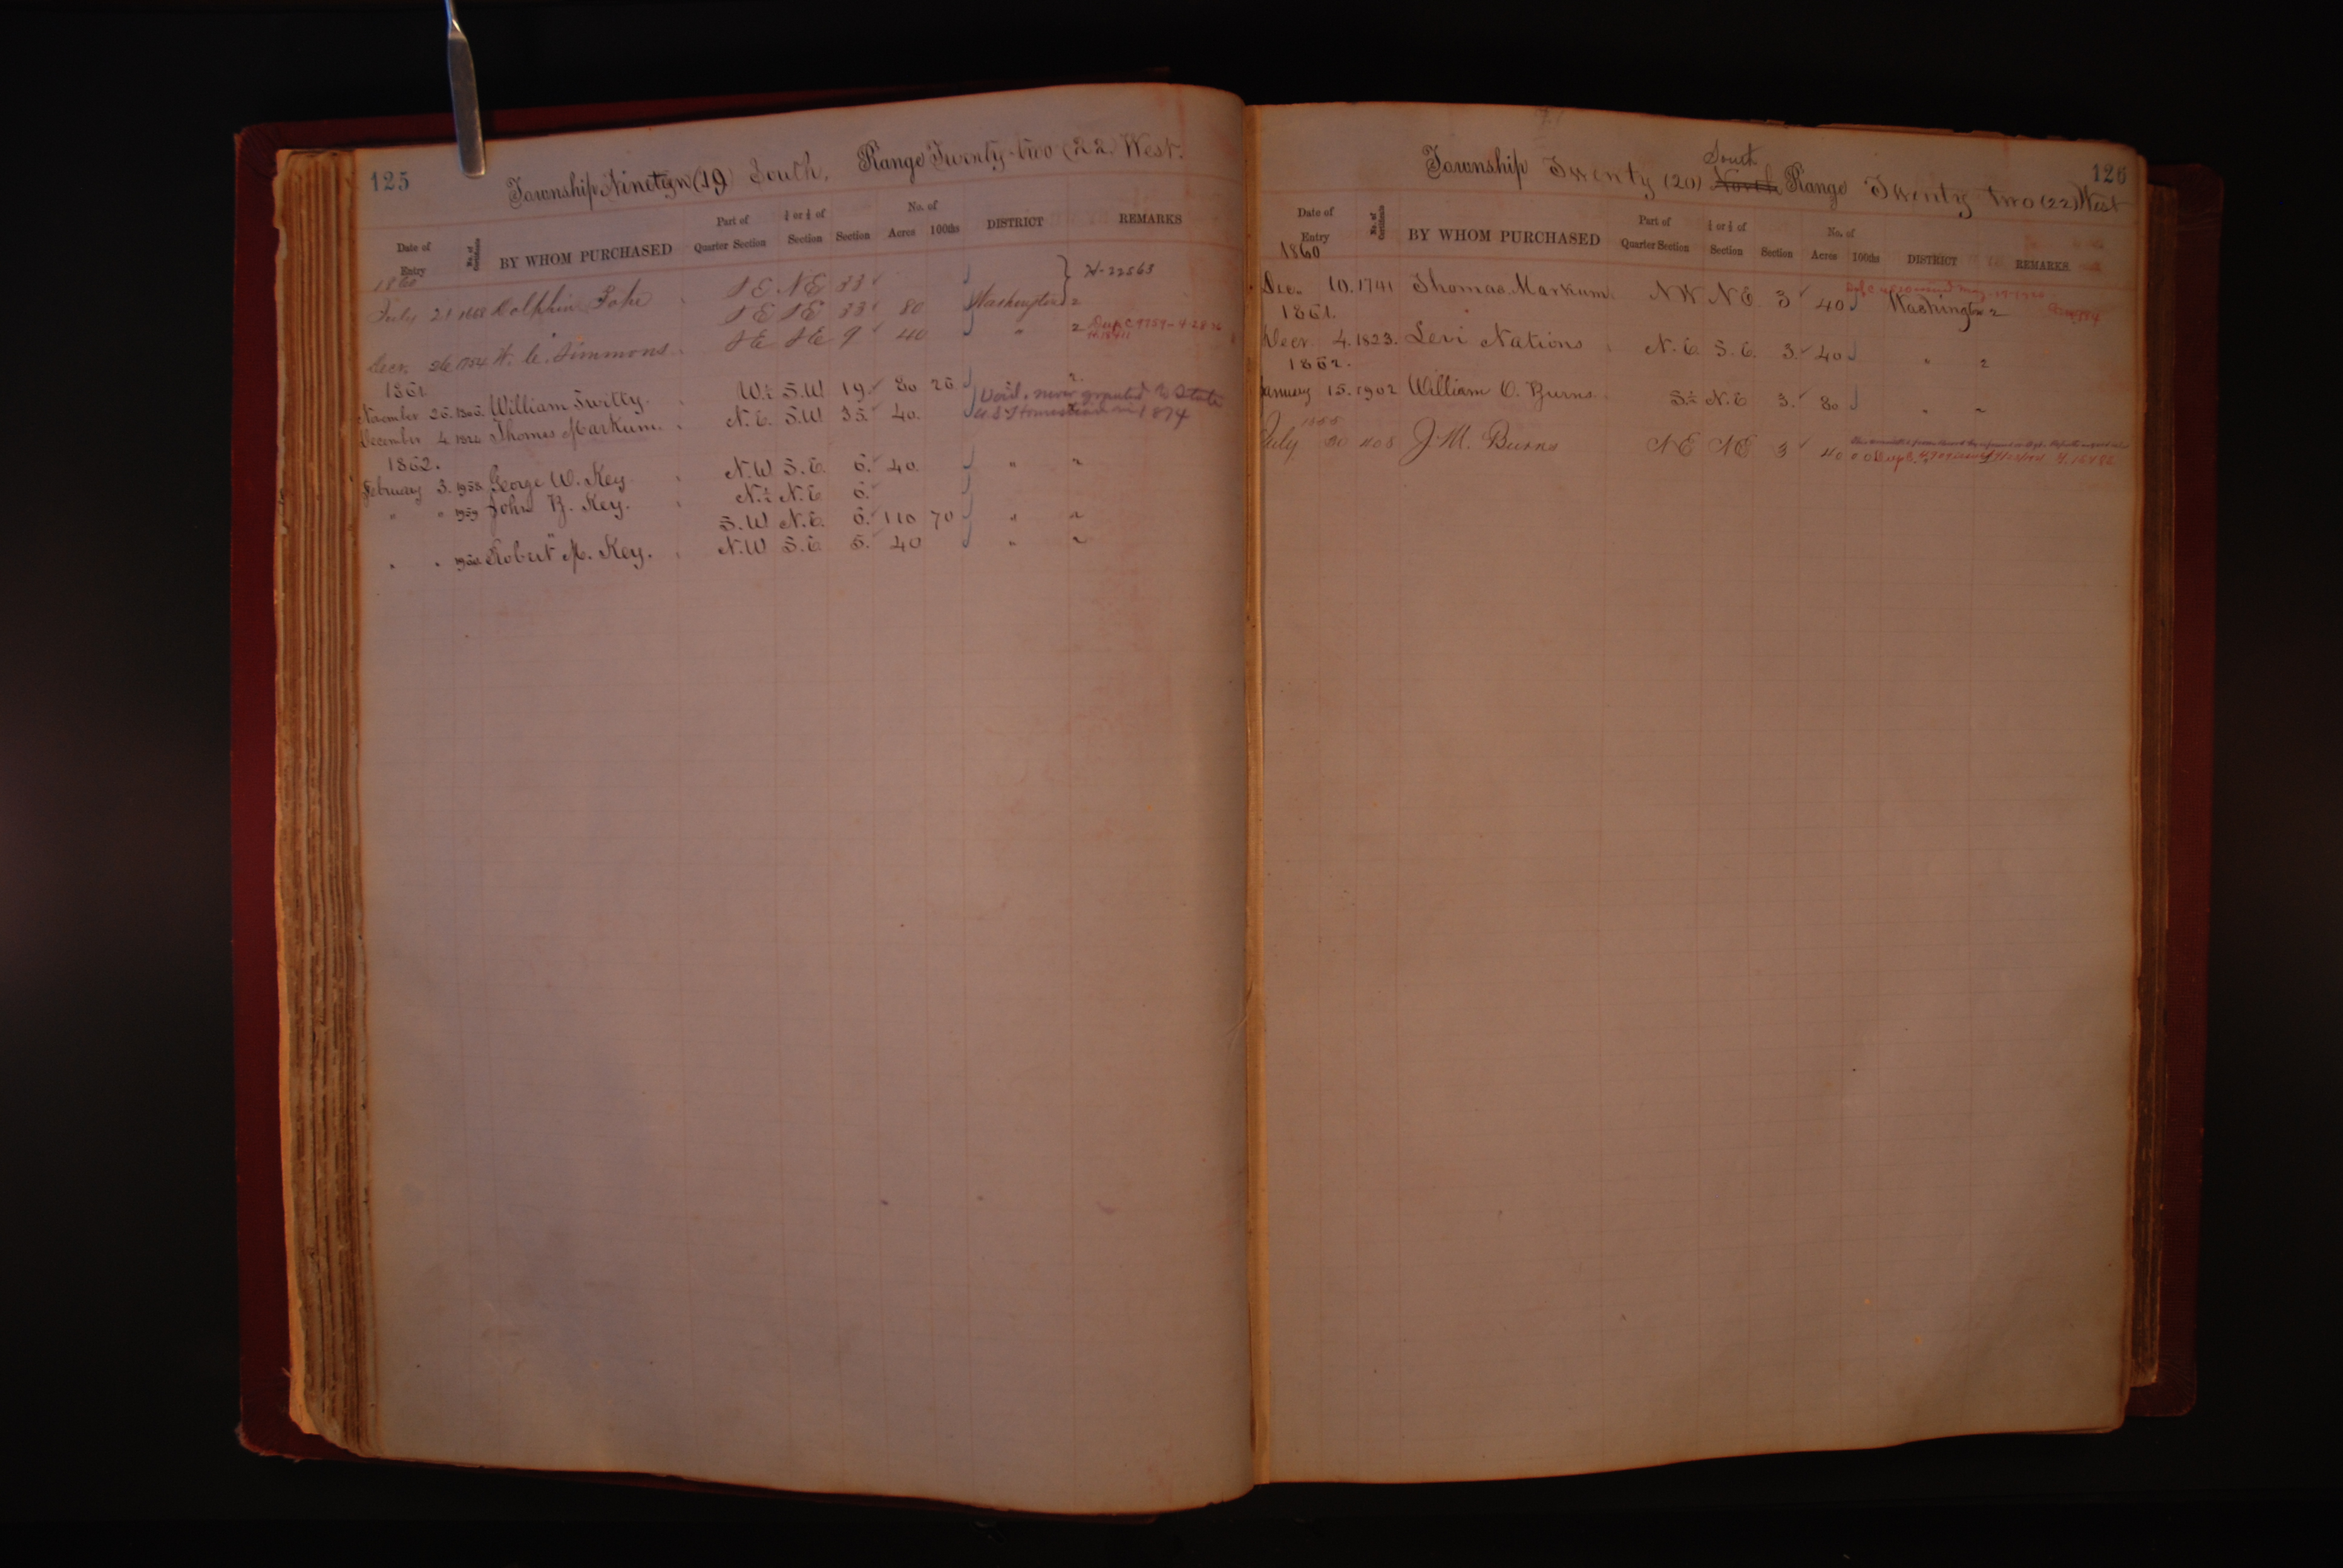 125
Township Nineteen (19) South, Range Twenty-two (22) West.
Date of Entry No. of Certificate BY WHOM PURCHASED Part of Quarter Section ½ or ¼ of Section Section No. of Acres 100ths DISTRICT REMARKS
1860
July 21 1668 Dolphin SE NE 33 H-22563
SE SE 33 80 Washington 2
Decr. 26 1754 Simmons SE SE 9 40 " 2
1861.
November 25. William Twitty. W.½ S.W 19 80 26 2
December 4. 1822 Thomas Markum. N.E. S.W 35. 40. Void, never granted to State
U.S. Homestead in 1874
1862.
February 3. 1958 George W. Key N.W S.E. 6. 40. " "
" " 1959 John B. Key. N.½ N.E 6.
S.W N.E. 6. 110 70 " "
" " 1960 Robert M. Key. N.W S.E 5. 40 " "
126
Township Twenty (20) South North Range Twenty two (22) West
Date of Entry No. of Certificate BY WHOM PURCHASED Part of Quarter Section ½ or ¼ of Section Section No. of Acres 100ths DISTRICT REMARKS
1860
Dec. 10. 1741 Thomas Markum. NW NE 3 40 Washington 2
1861.
Decr. 4. 1823. Levi Nations N.E S.E. 3. 40 " 2
1862.
January 15. 1902 William O. Burns. S.½ N.E 3. 80 " "
1855
July 30 1108 J. M. Burns NE NE 3 40 00